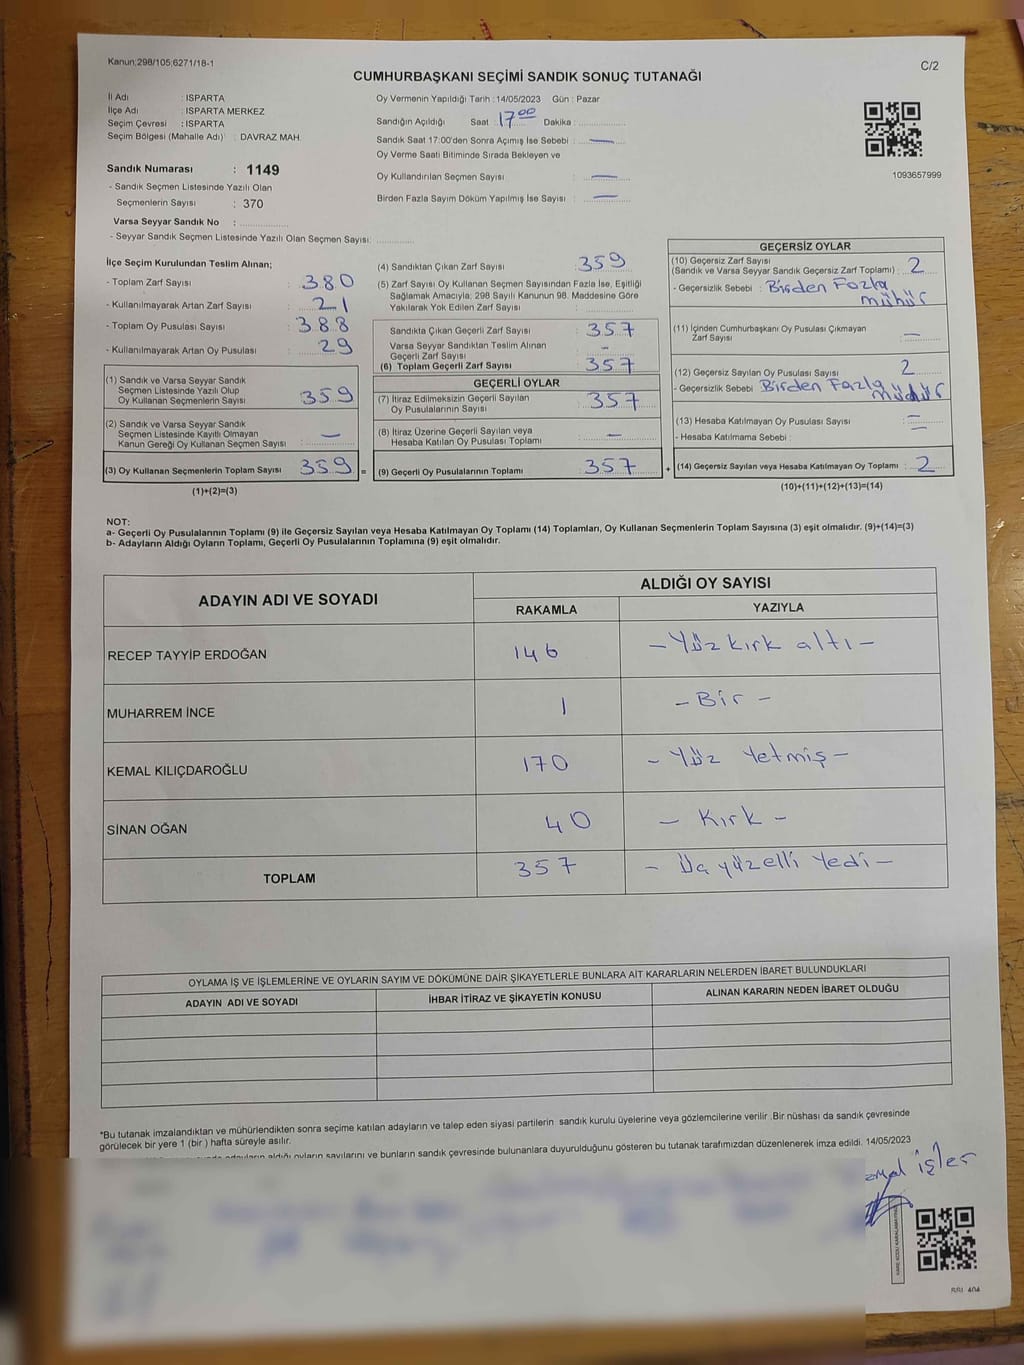 Kanun;298/105;6271/18-1
C/2
CUMHURBAŞKANI SEÇİMİ SANDIK SONUÇ TUTANAĞI
İl Adı : ISPARTA
İlçe Adı : ISPARTA MERKEZ
Seçim Çevresi : ISPARTA
Seçim Bölgesi (Mahalle Adı) : DAVRAZ MAH.
Sandık Numarası : 1149
- Sandık Seçmen Listesinde Yazılı Olan
Seçmenlerin Sayısı : 370
Varsa Seyyar Sandık No :
- Seyyar Sandık Seçmen Listesinde Yazılı Olan Seçmen Sayısı:
Oy Vermenin Yapıldığı Tarih : 14/05/2023 Gün : Pazar
Sandığın Açıldığı Saat : 17 00 Dakika :
Sandık Saat 17:00'den Sonra Açımış İse Sebebi : —
Oy Verme Saati Bitiminde Sırada Bekleyen ve
Oy Kullandırılan Seçmen Sayısı : —
Birden Fazla Sayım Döküm Yapılmış İse Sayısı : —
1093657999
İlçe Seçim Kurulundan Teslim Alınan;
- Toplam Zarf Sayısı : 380
- Kullanılmayarak Artan Zarf Sayısı : 21
- Toplam Oy Pusulası Sayısı : 388
- Kullanılmayarak Artan Oy Pusulası : 29
(1) Sandık ve Varsa Seyyar Sandık
Seçmen Listesinde Yazılı Olup
Oy Kullanan Seçmenlerin Sayısı : 359
(2) Sandık ve Varsa Seyyar Sandık
Seçmen Listesinde Kayıtlı Olmayan
Kanun Gereği Oy Kullanan Seçmen Sayısı : —
(3) Oy Kullanan Seçmenlerin Toplam Sayısı : 359 =
(1)+(2)=(3)
(4) Sandıktan Çıkan Zarf Sayısı : 359
(5) Zarf Sayısı Oy Kullanan Seçmen Sayısından Fazla İse, Eşitliği
Sağlamak Amacıyla; 298 Sayılı Kanunun 98. Maddesine Göre
Yakılarak Yok Edilen Zarf Sayısı :
Sandıkta Çıkan Geçerli Zarf Sayısı : 357
Varsa Seyyar Sandıktan Teslim Alınan
Geçerli Zarf Sayısı : —
(6) Toplam Geçerli Zarf Sayısı : 357
GEÇERLİ OYLAR
(7) İtiraz Edilmeksizin Geçerli Sayılan
Oy Pusulalarının Sayısı : 357
(8) İtiraz Üzerine Geçerli Sayılan veya
Hesaba Katılan Oy Pusulası Toplamı : —
(9) Geçerli Oy Pusulalarının Toplamı : 357 +
GEÇERSİZ OYLAR
(10) Geçersiz Zarf Sayısı
(Sandık ve Varsa Seyyar Sandık Geçersiz Zarf Toplamı) : 2
- Geçersizlik Sebebi : Birden Fazla
mühür
(11) İçinden Cumhurbaşkanı Oy Pusulası Çıkmayan
Zarf Sayısı : —
(12) Geçersiz Sayılan Oy Pusulası Sayısı : 2
- Geçersizlik Sebebi Birden Fazla
mühür
(13) Hesaba Katılmayan Oy Pusulası Sayısı : —
- Hesaba Katılmama Sebebi : —
(14) Geçersiz Sayılan veya Hesaba Katılmayan Oy Toplamı : 2
(10)+(11)+(12)+(13)=(14)
NOT:
a- Geçerli Oy Pusulalarının Toplamı (9) ile Geçersiz Sayılan veya Hesaba Katılmayan Oy Toplamı (14) Toplamları, Oy Kullanan Seçmenlerin Toplam Sayısına (3) eşit olmalıdır. (9)+(14)=(3)
b- Adayların Aldığı Oyların Toplamı, Geçerli Oy Pusulalarının Toplamına (9) eşit olmalıdır.
ADAYIN ADI VE SOYADI
ALDIĞI OY SAYISI
RAKAMLA YAZIYLA
RECEP TAYYİP ERDOĞAN 146 — Yüz kırk altı —
MUHARREM İNCE 1 — Bir —
KEMAL KILIÇDAROĞLU 170 — Yüz Yetmiş —
SİNAN OĞAN 40 — Kırk —
TOPLAM 357 — Üç yüzelli Yedi —
OYLAMA İŞ VE İŞLEMLERİNE VE OYLARIN SAYIM VE DÖKÜMÜNE DAİR ŞİKAYETLERLE BUNLARA AİT KARARLARIN NELERDEN İBARET BULUNDUKLARI
ADAYIN ADI VE SOYADI İHBAR İTİRAZ VE ŞİKAYETİN KONUSU ALINAN KARARIN NEDEN İBARET OLDUĞU
*Bu tutanak imzalandıktan ve mühürlendikten sonra seçime katılan adayların ve talep eden siyasi partilerin sandık kurulu üyelerine veya gözlemcilerine verilir .Bir nüshası da sandık çevresinde
görülecek bir yere 1 (bir ) hafta süreyle asılır.
adayların aldığı oyların sayılarını ve bunların sandık çevresinde bulunanlara duyurulduğunu gösteren bu tutanak tarafımızdan düzenlenerek imza edildi. 14/05/2023
işler